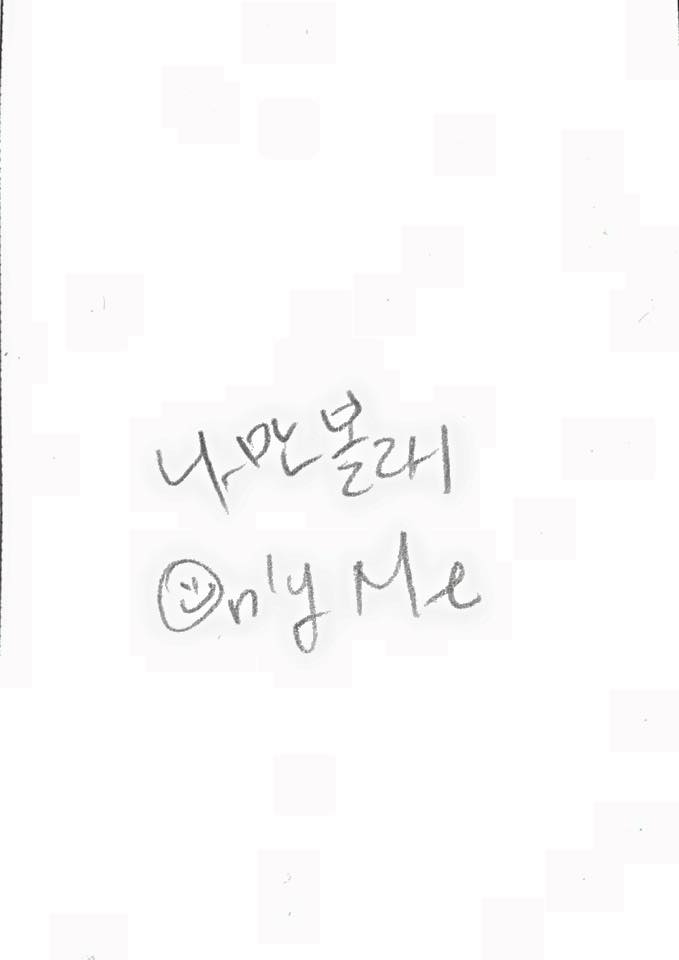 나만볼래
Only Me